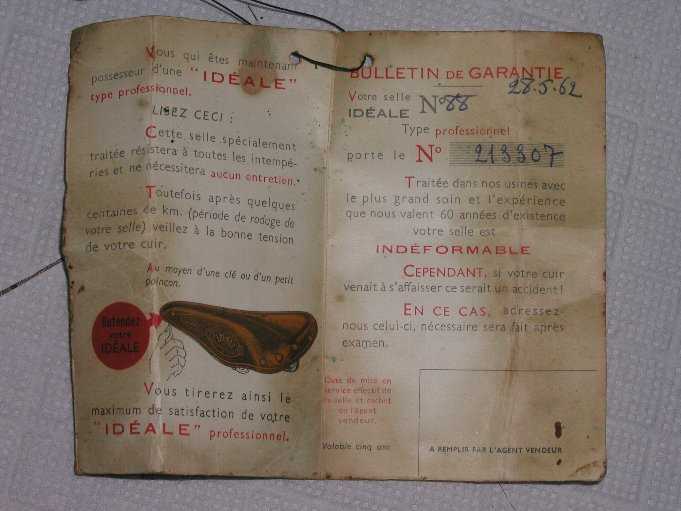 Vous qui êtes maintenant
possesseur d'une "IDÉALE"
type professionnel.
LISEZ CECI :
Cette selle spécialement
traitée résistera à toutes les intempé-
ries et ne nécessitera aucun entretien.
Toutefois après quelques
centaines de km. (période de rodage de
votre selle) veillez à la bonne tension
de votre cuir.
Au moyen d'une clé ou d'un petit
poinçon.
Retendez
votre
IDÉALE
Vous tirerez ainsi le
maximum de satisfaction de votre
"IDÉALE" professionnel.
BULLETIN DE GARANTIE
28.5.62
Votre selle
IDÉALE N°88
Type professionnel
porte le N° 213307
Traitée dans nos usines avec
le plus grand soin et l'expérience
que nous valent 60 années d'existence
votre selle est
INDÉFORMABLE
CEPENDANT, si votre cuir
venait à s'affaisser ce serait un accident !
EN CE CAS, adressez-
nous celui-ci, nécessaire sera fait après
examen.
Date de mise en
service effectif de
la selle et cachet
de l'agent
vendeur.
Valable cinq ans
A REMPLIR PAR L'AGENT VENDEUR